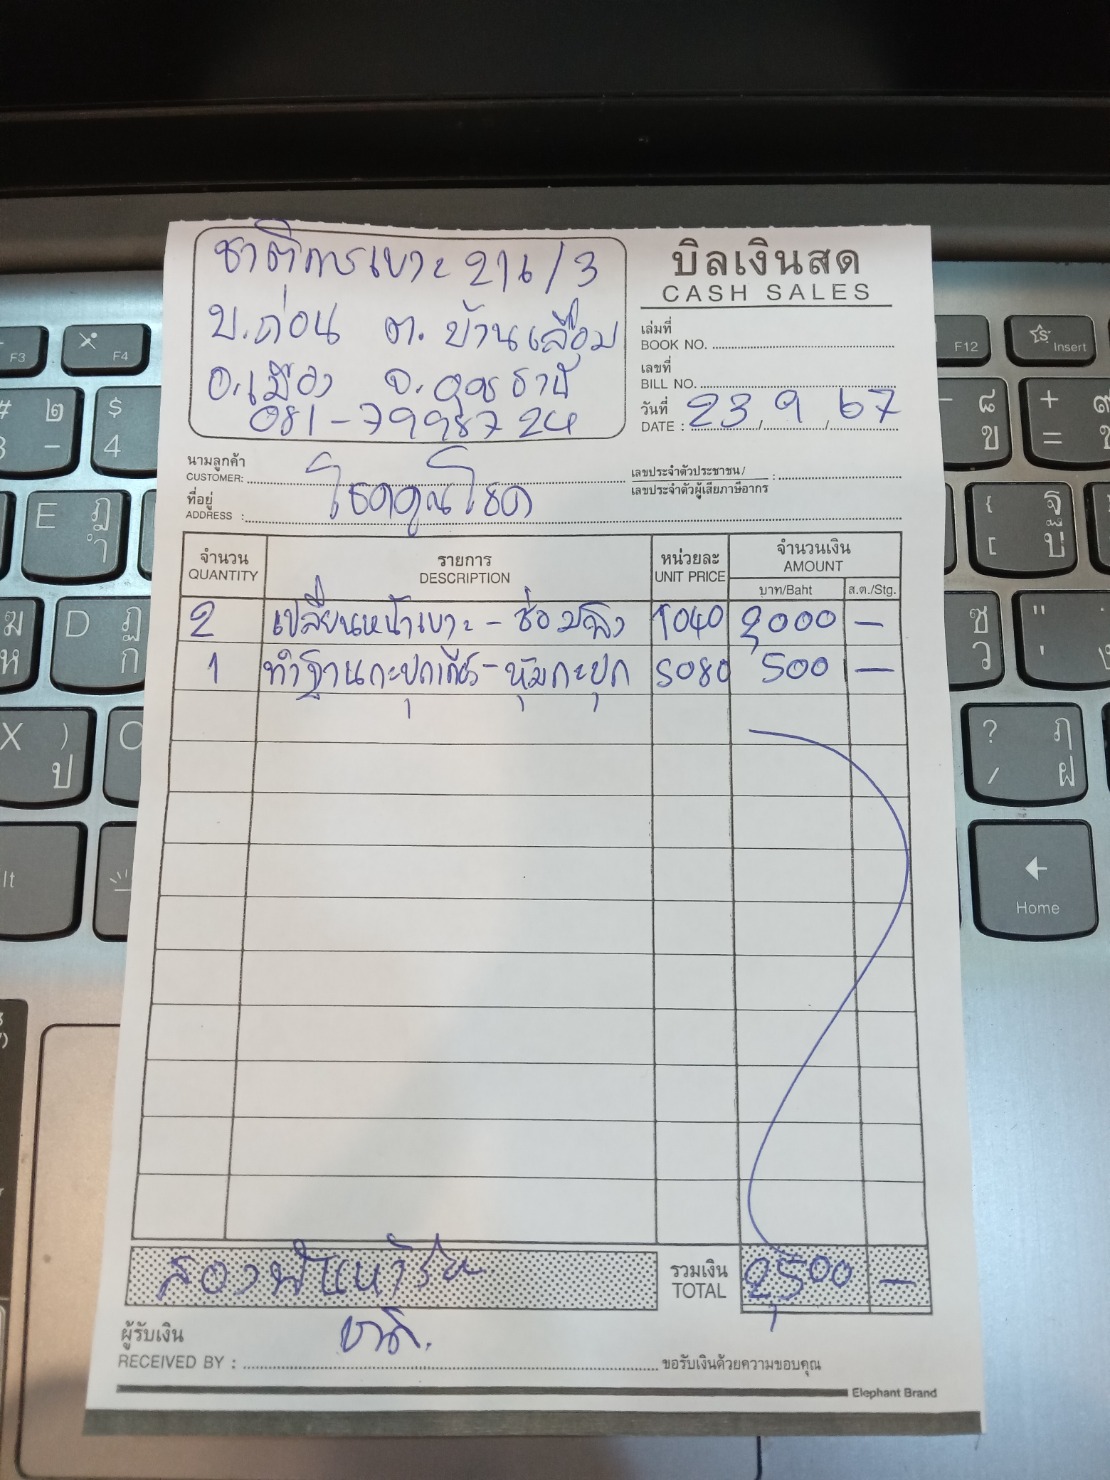 ชาติการเบาะ 216/3
บ.ก่อน ต. บ้านเลื่อม
อ.เมือง จ.อุดรธานี
081-7998724
บิลเงินสด
CASH SALES
เล่มที่
BOOK NO.
เลขที่
BILL NO.
วันที่
DATE : 23 / 9 / 67
นามลูกค้า
CUSTOMER:
เลขประจำตัวประชาชน /
เลขประจำตัวผู้เสียภาษีอากร :
ที่อยู่
ADDRESS : โชคคูณโชค
จำนวน รายการ หน่วยละ จำนวนเงิน
QUANTITY DESCRIPTION UNIT PRICE AMOUNT
บาท/Baht ส.ต./Stg.
2 เปลี่ยนหน้าเบาะ - ซ่อมสปิง 1040 2000 —
1 ทำฐานกะปุกเกียร์ - หุ้มกะปุก 5080 500 —
สองพันห้าร้อย รวมเงิน 2500 —
TOTAL
ผู้รับเงิน
RECEIVED BY : ขอรับเงินด้วยความขอบคุณ
Elephant Brand
F3
F4
F12
Insert
Home